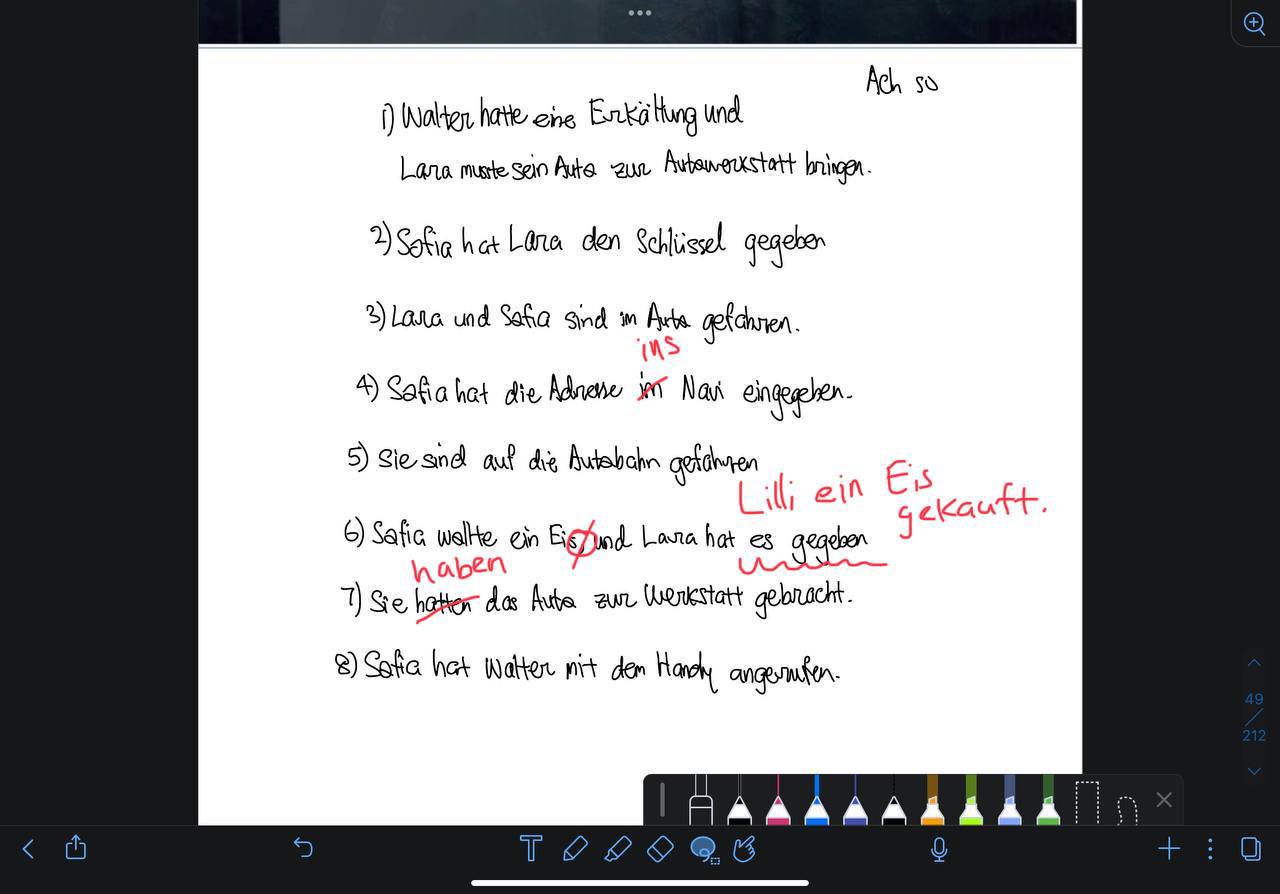 Ach so
1) Walter hatte eine Erkältung und
Lara musste sein Auto zur Autowerkstatt bringen.
2) Sofia hat Lara den Schlüssel gegeben
3) Lara und Sofia sind im Auto gefahren.
ins
4) Sofia hat die Adresse im Navi eingegeben.
5) Sie sind auf die Autobahn gefahren
Lilli ein Eis
gekauft.
6) Sofia wollte ein Eis, und Lara hat es gegeben
haben
7) Sie hatten das Auto zur Werkstatt gebracht.
8) Sofia hat Walter mit dem Handy angerufen.
49
212